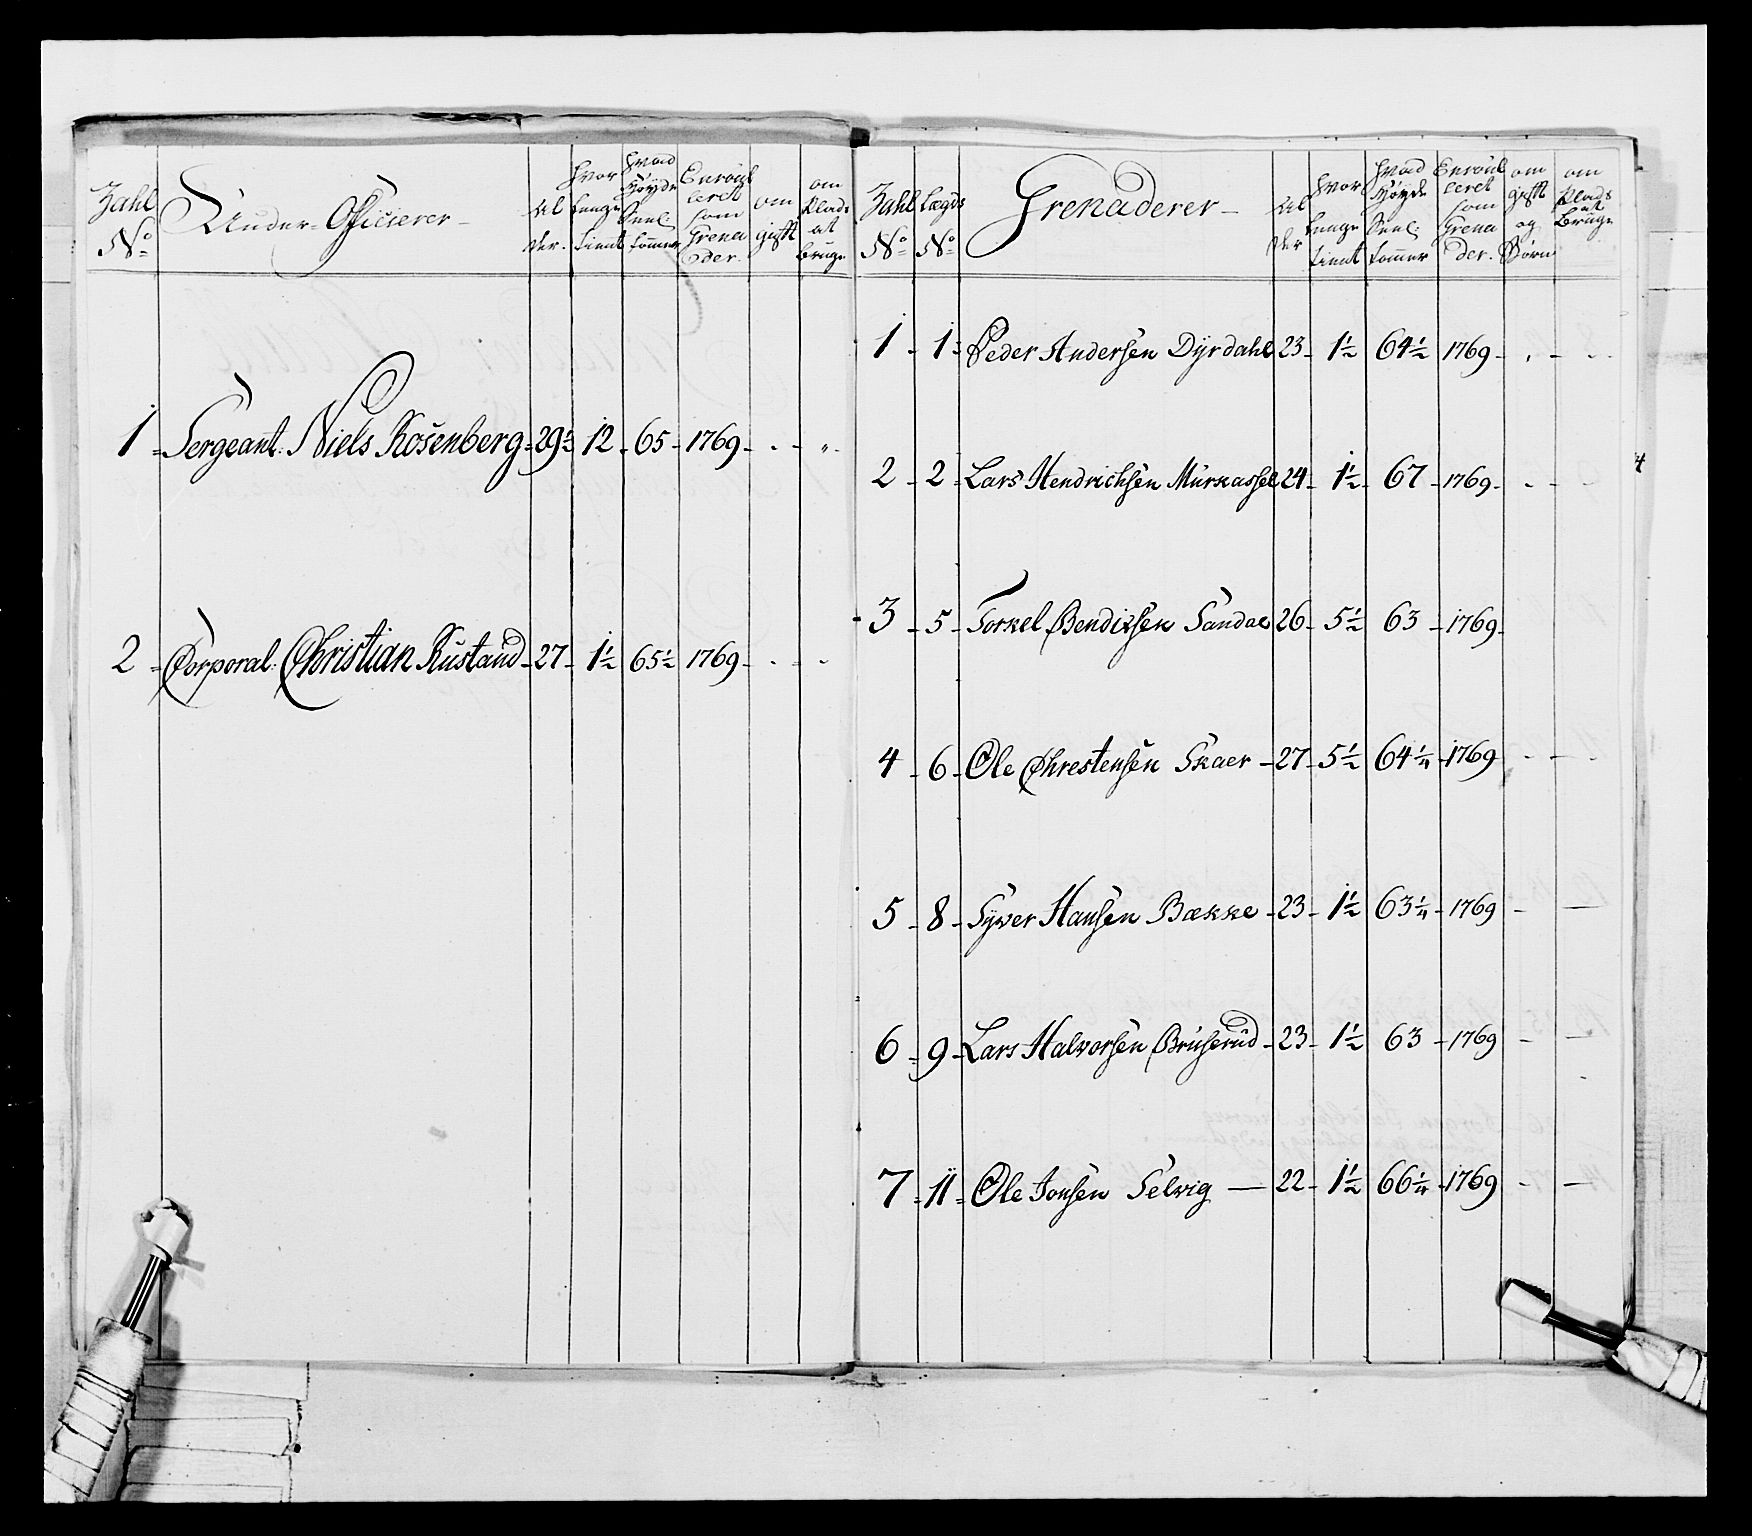 Zahl No Under-Officierer Al der. Hvor Længe tient Hvad Høyde Seel. tommer Enroul leret som Grena der. om gifft om Plads at bruge
1 Sergeant: Niels Rosenberg 29½ 12 65 1769
2 Corporal: Christian Rustand 27 1½ 65½ 1769
Zahl No Lægds No Grenaderer Al der Hvor Længe tient Hvad Høyde Seel. tommer Enroul leret som Grena der. om gifft og Børn om Plads at Bruge
1 1 Peder Andersen Dÿrdahl 23 1½ 64½ 1769
2 2 Lars Hendrichsen Murkassel 24 1½ 67 1769
3 5 Torkel Bendixsen Sandae 26 5½ 63 1769
4 6 Ole Chrestensen Skaer 27 5½ 64¼ 1769
5 8 Syver Hansen Bække 23 1½ 63¼ 1769
6 9 Lars Halvorsen Bruserud 23 1½ 63 1769
7 11 Ole Jonsen Selvig 22 1½ 66¼ 1769